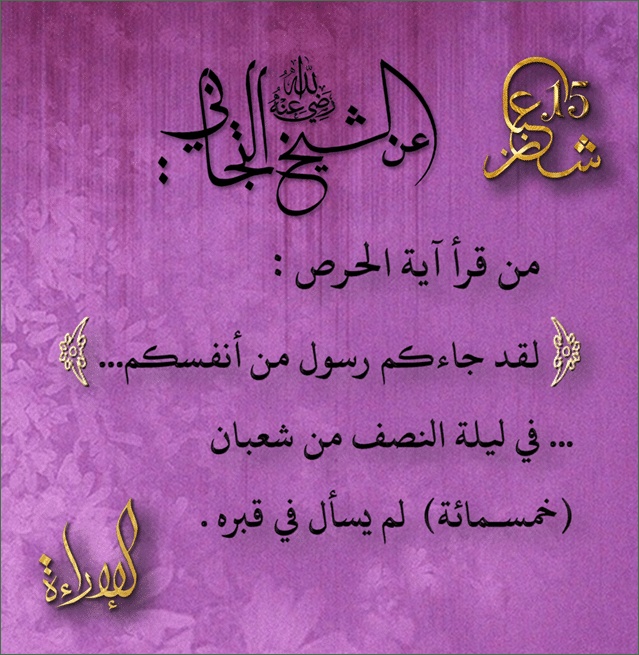 15 شعبان
عن الشيخ التجاني رضي الله عنه :
من قرأ آية الحرص :
﴿ لقد جاءكم رسول من أنفسكم... ﴾
... في ليلة النصف من شعبان
(خمسمائة) لم يسأل في قبره .
الإراءة